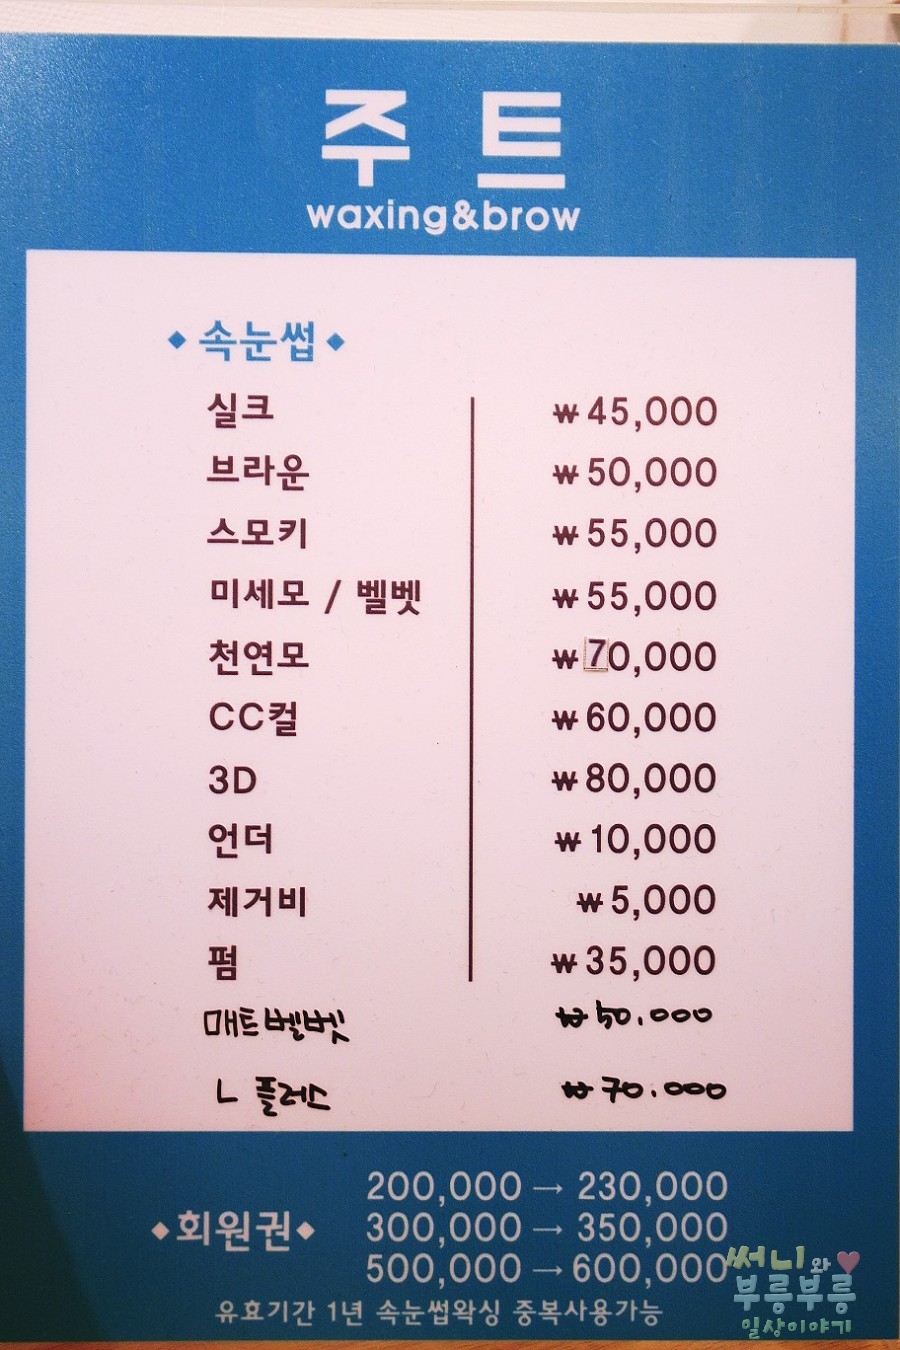 주트
waxing&brow
◆ 속눈썹 ◆
실크 ₩45,000
브라운 ₩50,000
스모키 ₩55,000
미세모 / 벨벳 ₩55,000
천연모 ₩70,000
CC컬 ₩60,000
3D ₩80,000
언더 ₩10,000
제거비 ₩5,000
펌 ₩35,000
매트벨벳 ₩50.000
L 플러스 ₩70.000
200,000 → 230,000
◆회원권◆ 300,000 → 350,000
500,000 → 600,000
유효기간 1년 속눈썹왁싱 중복사용가능
써니와♥
부릉부릉
일상이야기